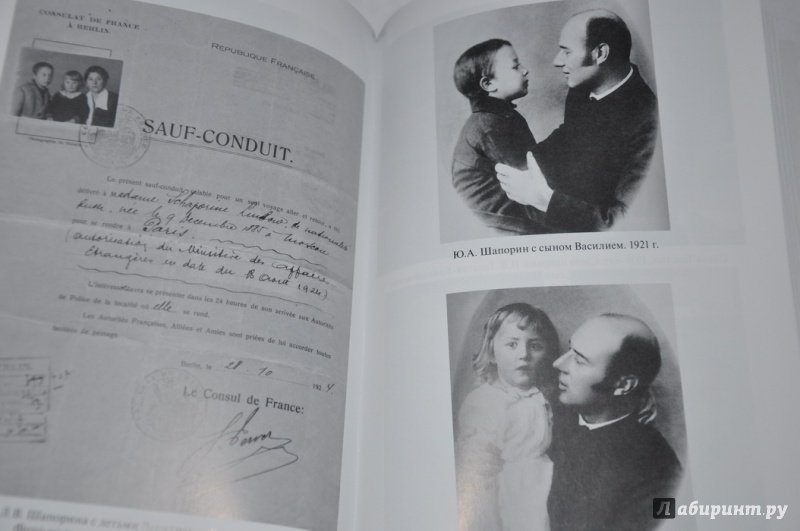 CONSULAT DE FRANCE
À BERLIN.
RÉPUBLIQUE FRANÇAISE
SAUF-CONDUIT.
Le présent sauf-conduit, valable pour un seul voyage aller et retour, a été
délivré à Madame Schaporine de nationalité
Russe, née le 9 décembre 1885 à Moscou
pour se rendre à Paris
(autorisation du Ministère des Affaires
Etrangères en date du 8 Août 1924)
L'intéressée devra se présenter dans les 24 heures de son arrivée aux Autorités
de Police de la localité où elle se rend.
Les Autorités Françaises, Alliées et Amies sont priées de lui accorder toutes
facilités de passage.
Berlin, le 28-10 1924
Le Consul de France:
В. Шапорина с детьми
Ю.А. Шапорин с сыном Василием. 1921 г.
Лабиринт.ру